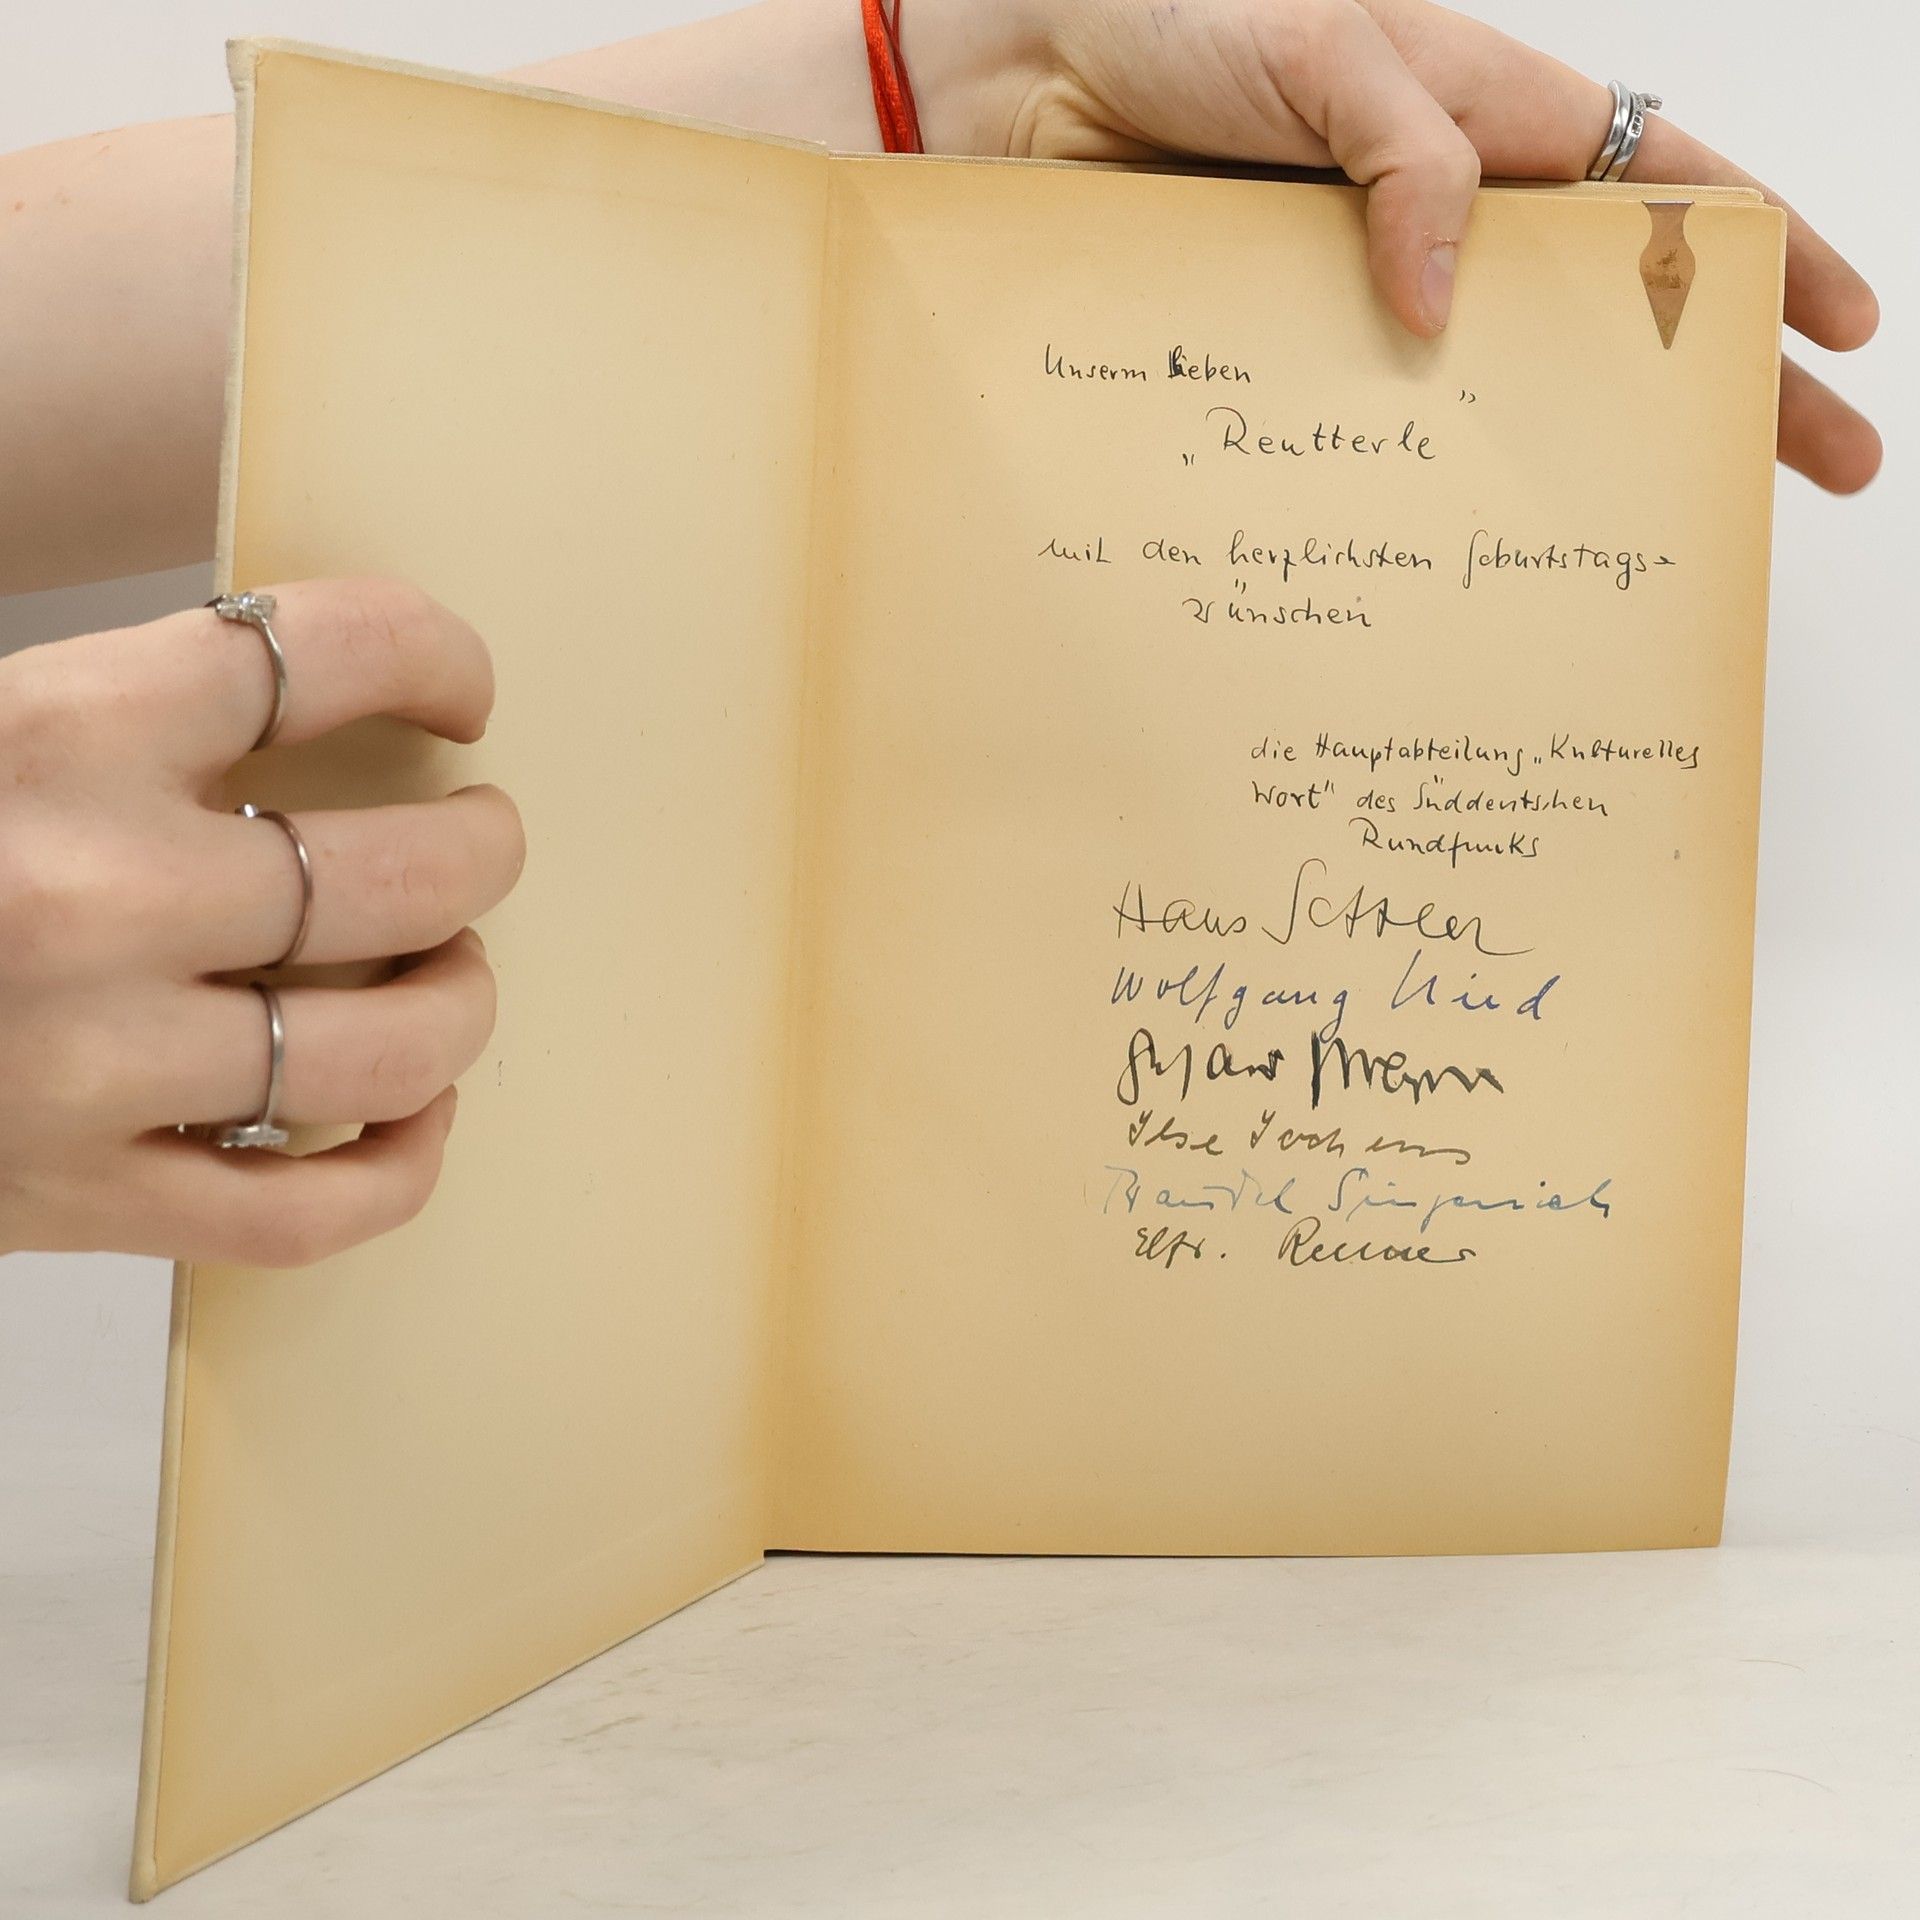 Unserm lieben
„Reutterle”
mit den herzlichsten Geburtstags=
wünschen
die Hauptabteilung „Kulturelles
Wort" des Süddeutschen
Rundfunks
Hans
Wolfgang
Ilse Jochems
Elfr.